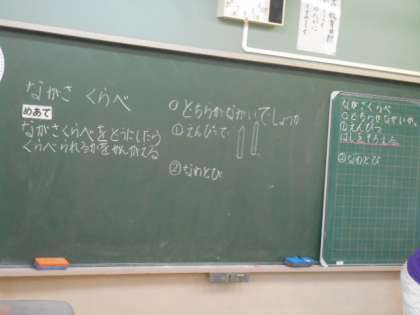 ながさ くらべ
めあて
ながさくらべをどうしたら
くらべられるかをかんがえる
どちらがながいでしょうか
①えんぴつで
②なわとび
ながさくらべ
①えんぴつ
はしをそろえる
②なわとび